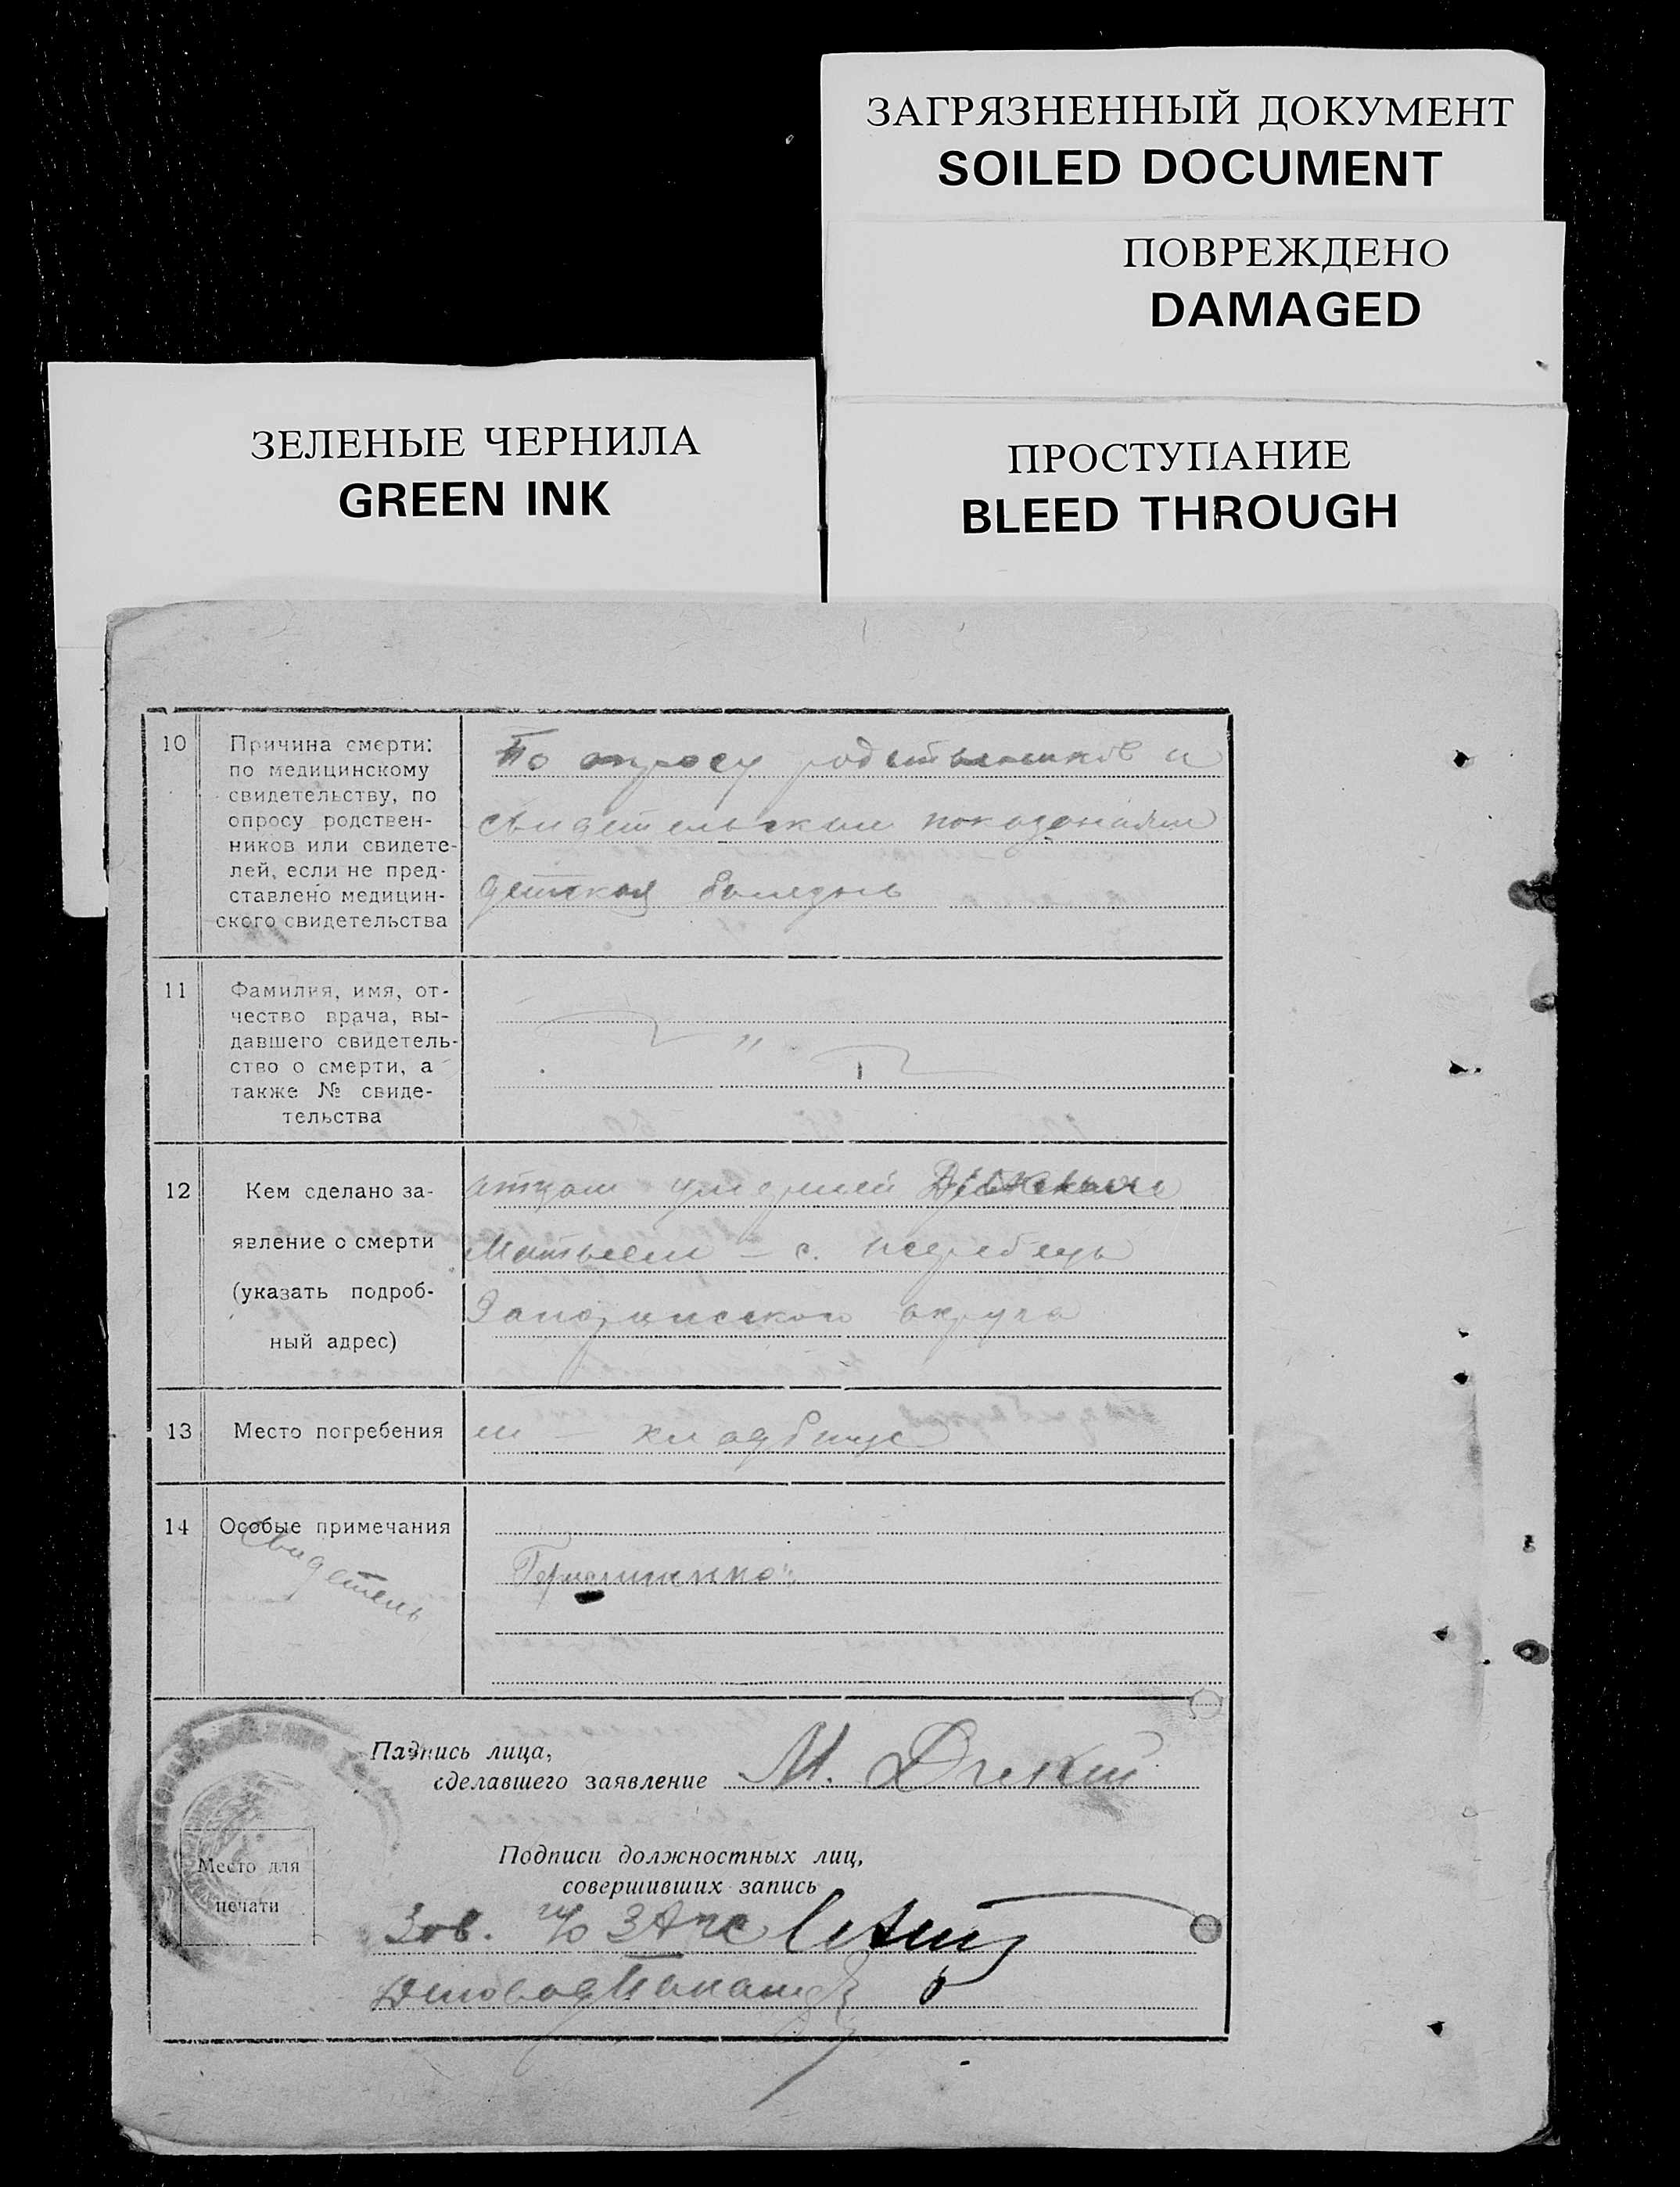 ЗАГРЯЗНЕННЫЙ ДОКУМЕНТ
SOILED DOCUMENT
ПОВРЕЖДЕНО
DAMAGED
ЗЕЛЕНЫЕ ЧЕРНИЛА
GREEN INK
ПРОСТУПАНИЕ
BLEED THROUGH
10
Причина смерти:
по медицинскому
свидетельству, по
опросу родствен-
ников или свидете-
лей, если не пред-
ставлено медицин-
ского свидетельства
По опросу родственников и
свидетельским показаниям
детская болезнь
11
Фамилия, имя, от-
чество врача, вы-
давшего свидетель-
ство о смерти, а
также № свиде-
тельства
"
12
Кем сделано за-
явление о смерти
(указать подроб-
ный адрес)
отцом умершей
Матвеем - с.
округа
13
Место погребения
кладбище
14
Особые примечания
Свидетель
Подпись лица,
сделавшего заявление
М.
Место для
печати
Подписи должностных лиц,
совершивших запись
Зав. ЗАГС